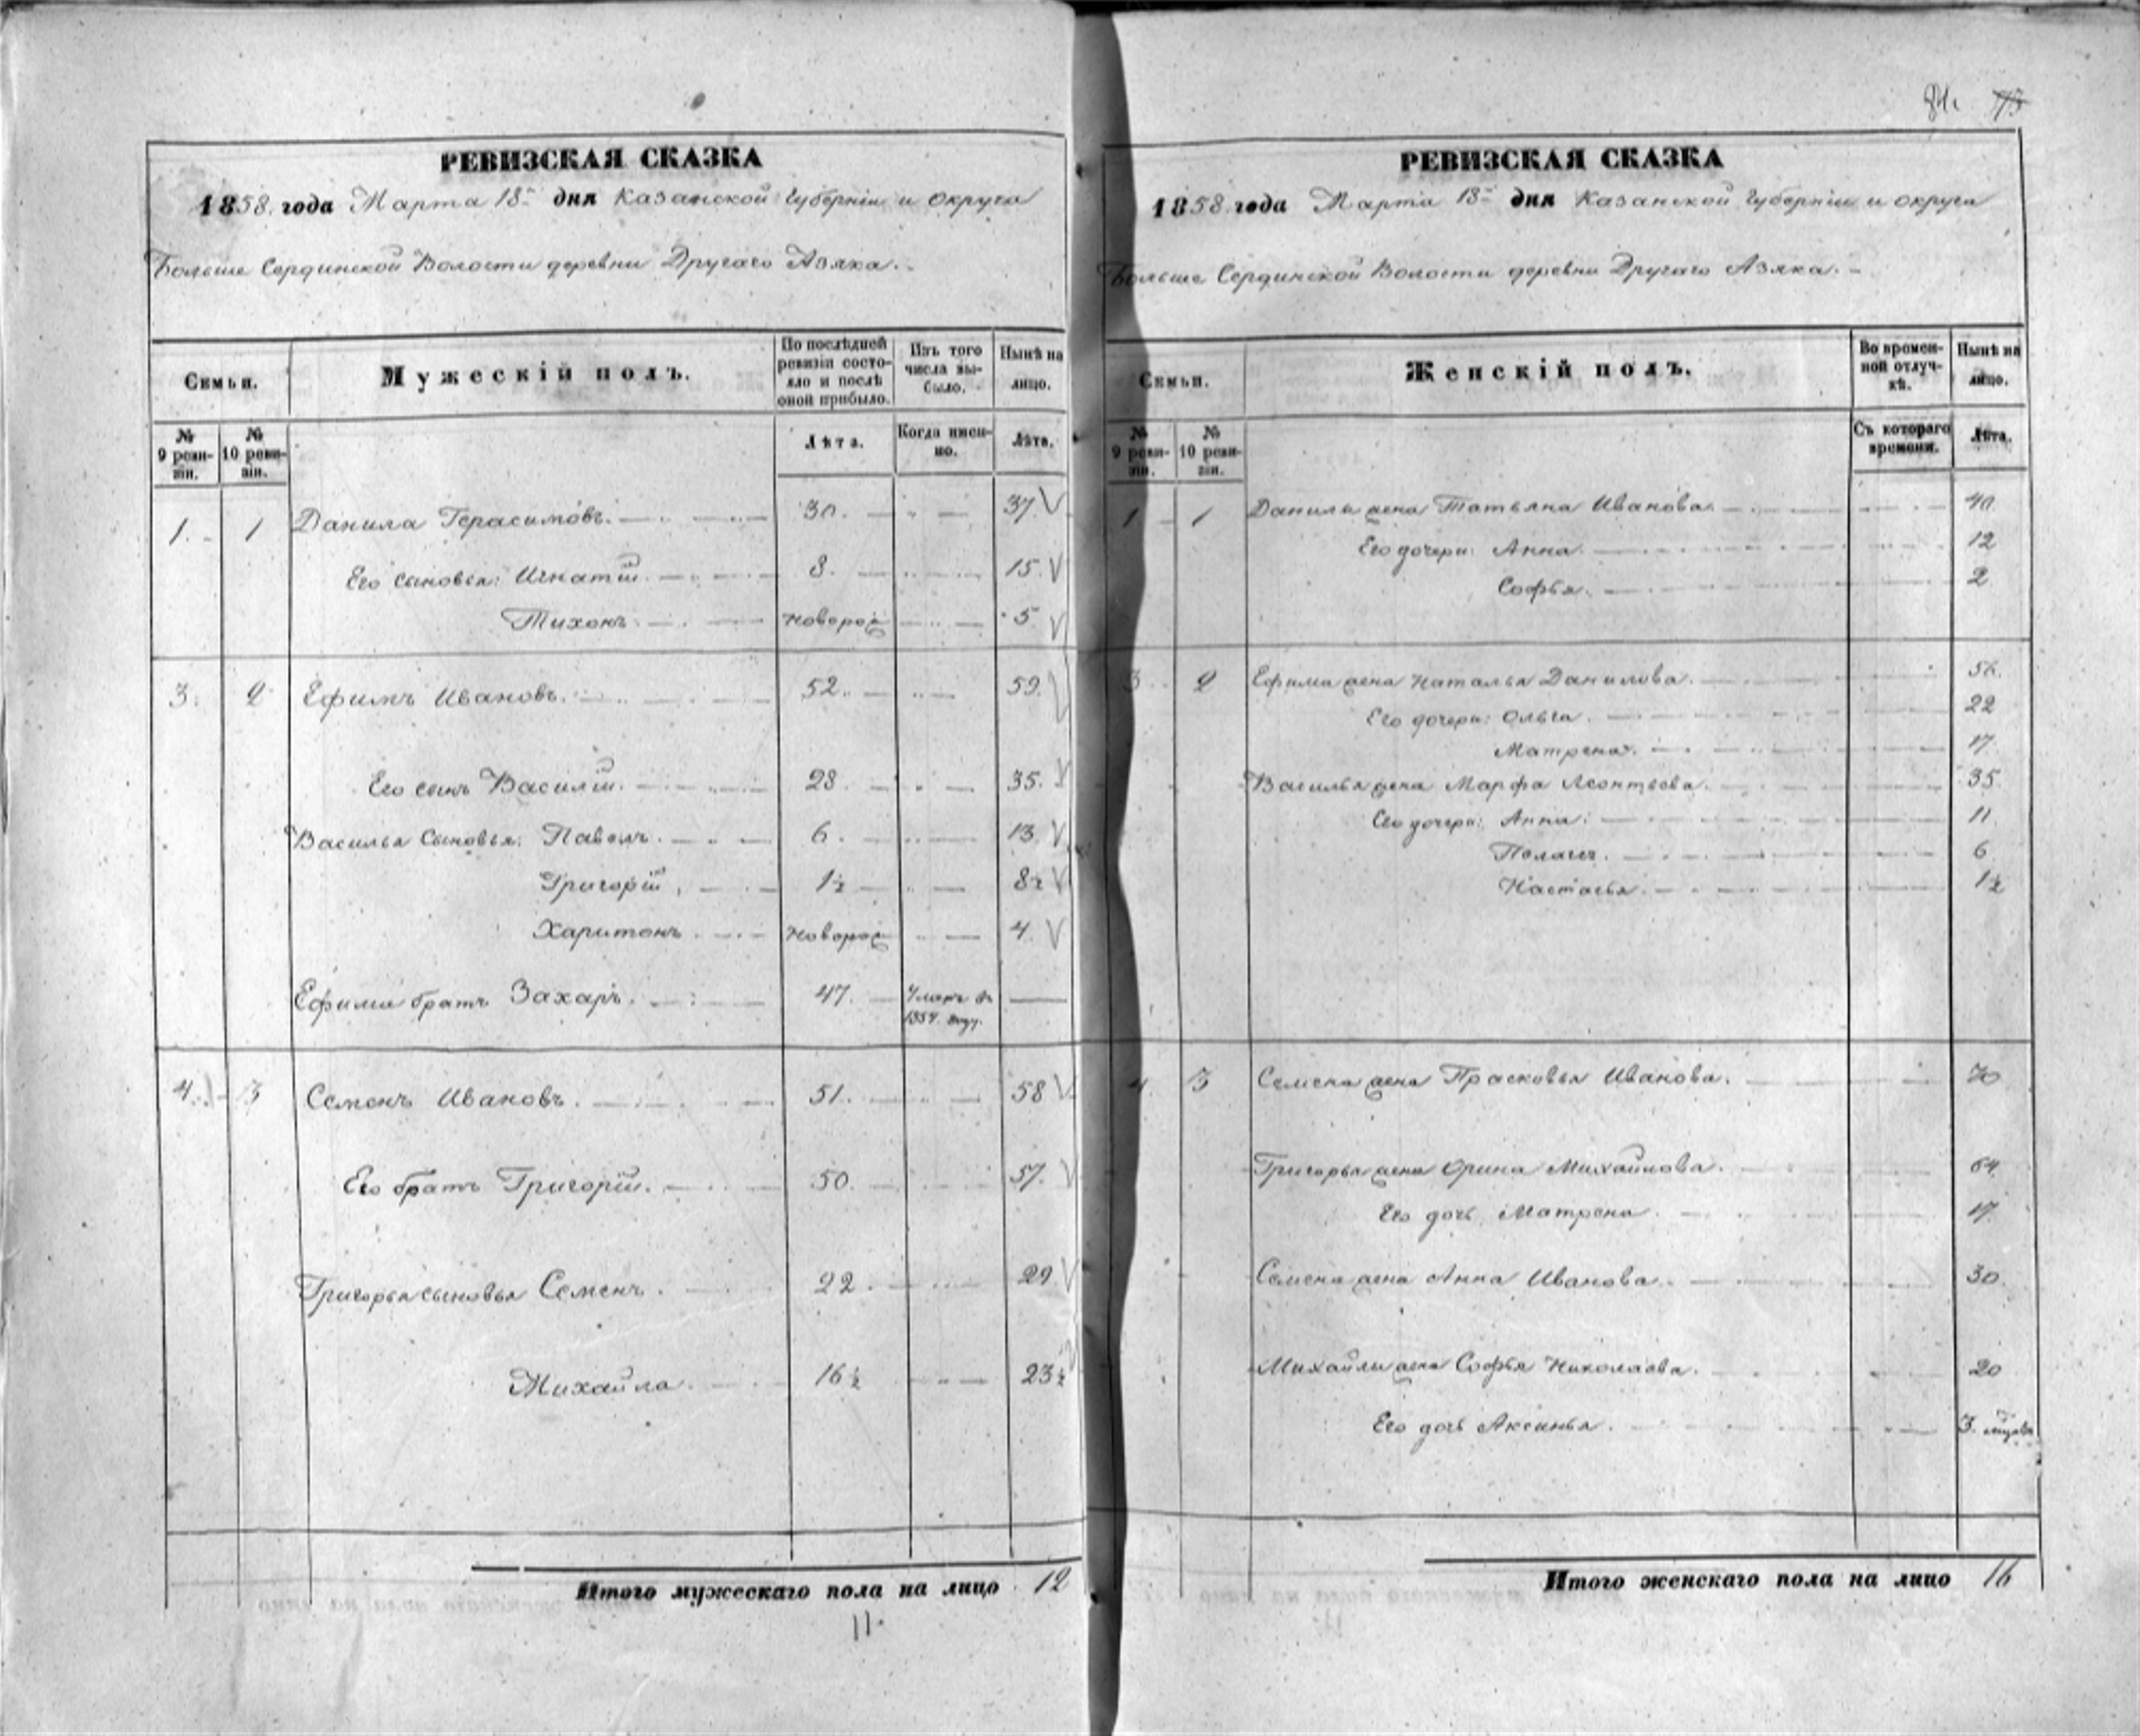 РЕВИЗСКАЯ СКАЗКА
1858. года Марта 18 дня Казанской Губерніи и округа
Больше Сердинской Волости деревни Другаго Азяка.
Семьи.
Мужескій полъ.
По послѣдней ревизіи состояло и послѣ оной прибыло.
Изъ того числа выбыло.
Нынѣ на лицо.
№ 9 ревизіи.
№ 10 ревизіи.
Лѣта.
Когда именно.
Лѣта.
1. 1 Данила Герасимовъ. 30. 37.
Его сыновья: Игнатій. 8. 15.
Тихонъ. новорож 5
3. 2 Ефимъ Ивановъ. 52. 59.
Его сынъ Василій. 28. 35.
Василья Сыновья: Павелъ. 6. 13.
Григорій, 1½ 8½
Харитонъ. новорож 4.
Ефима братъ Захаръ. 47. году.
4. 3 Семенъ Ивановъ. 51. 58
Его братъ Григорій. 50. 57.
Григорья сыновья Семенъ. 22. 29.
Михайла. 16½ 23½
Итого мужескаго пола на лицо 12
11.
84.
РЕВИЗСКАЯ СКАЗКА
1858. года Марта 18 дня Казанской Губерніи и округа
Больше Сердинской Волости деревни Другаго Азяка.
Семьи.
Женскій полъ.
Во временной отлучкѣ.
Нынѣ на лицо.
№ 9 ревизіи.
№ 10 ревизіи.
Съ котораго времени.
Лѣта.
1 1 Данилы жена Татьяна Иванова. 40.
Его дочери: Анна. 12
Софья. 2
3 2 Ефима жена Наталья Данилова. 56.
Его дочери: Ольга. 22
Матрена. 17.
Василья жена Марфа Леонтьева. 35
Его дочери: Анна: 11.
Пелагея. 6
Настасья. 1½
4. 3 Семена жена Прасковья Иванова. 70
Григорья жена Орина Михайлова. 64.
Его дочь Матрена. 17.
Семена жена Анна Иванова. 30.
Михайлы жена Софья Николаева. 20
Его дочь Аксинья. 3.
Итого женскаго пола на лицо 16